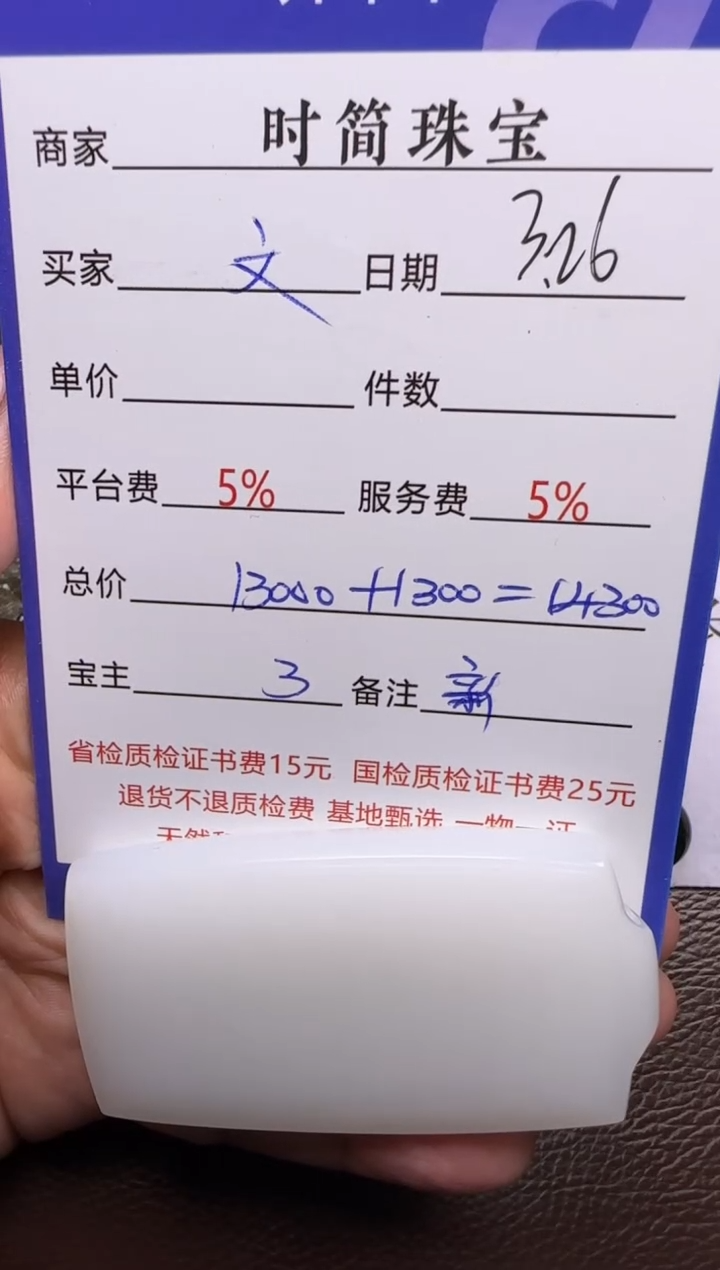 商家 时简珠宝
买家 文 日期 3.26
单价 件数
平台费 5% 服务费 5%
总价 13000+1300=14300
宝主 3 备注 新
省检质检证书费15元 国检质检证书费25元
退货不退质检费 基地甄选 一物一证
天然